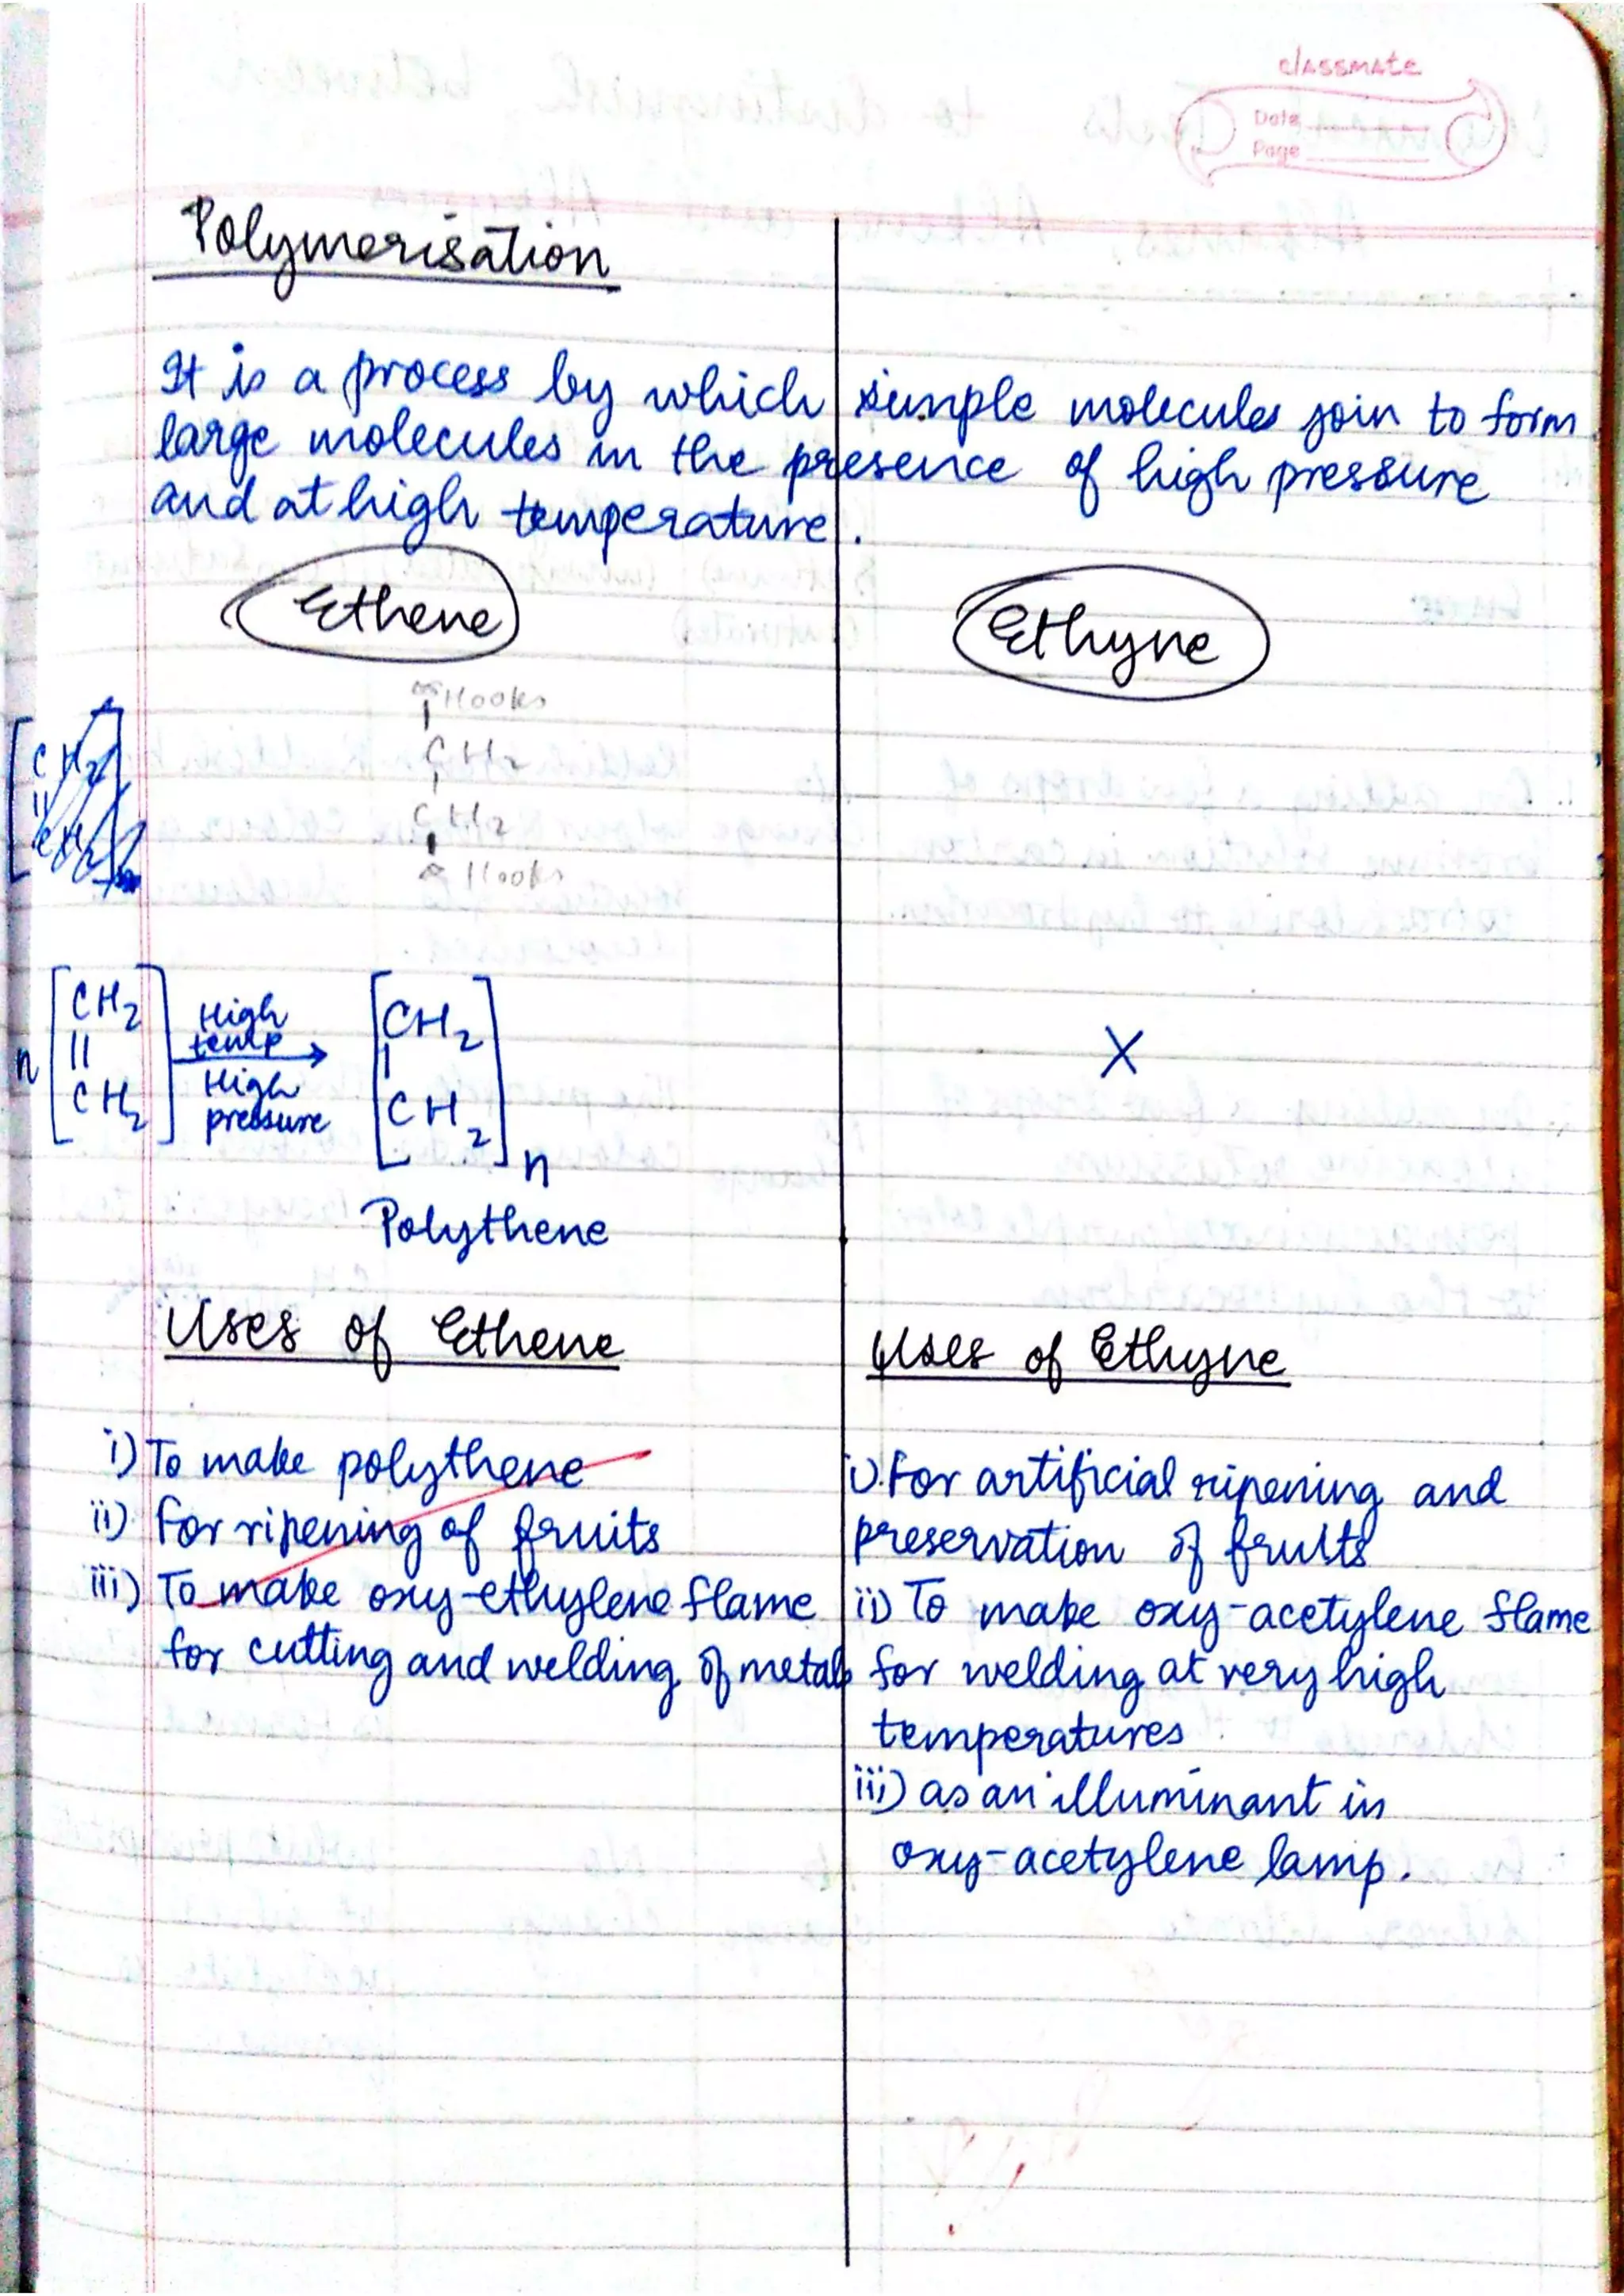 classmate
Date
Page
Polymerisation
It is a process by which simple molecules join to form
large molecules in the presence of high pressure
and at high temperature.
Ethene
Ethyne
Hooks
CH2
CH2
Hooks
CH2
||
CH2
n [CH2 || CH2] High temp High pressure → [CH2 | CH2]n
X
Polythene
Uses of Ethene
Uses of Ethyne
i) To make polythene
ii) For ripening of fruits
iii) To make oxy-ethylene flame
for cutting and welding of metals
i) For artificial ripening and
preservation of fruits
ii) To make oxy-acetylene flame
for welding at very high
temperatures
iii) as an illuminant in
oxy-acetylene lamp.